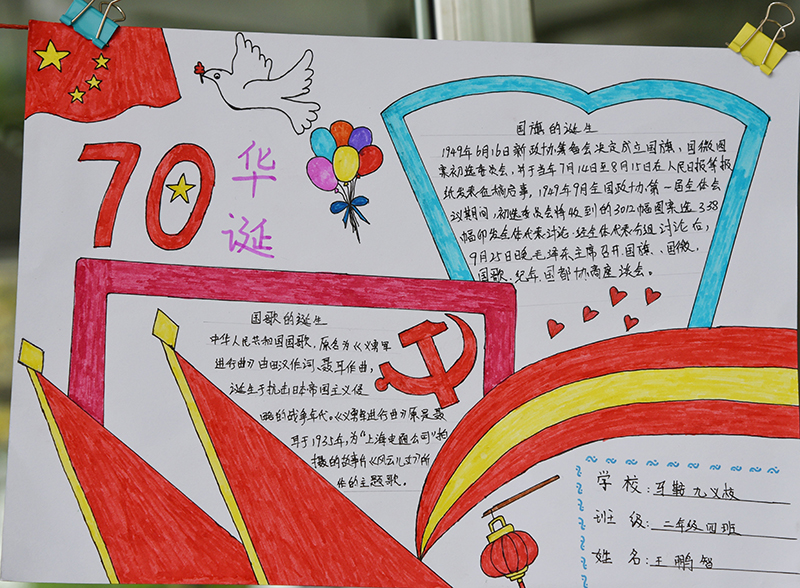 70
华
诞
国旗的诞生
1949年6月16日新政协筹备会决定成立国旗、国徽图
案初选委员会,并于当年7月14日至8月15日在人民日报等报
纸发表征稿启事。1949年9月全国政协第一届全体会
议期间,初选委员会将收到的3012幅图案选38
幅印发全体代表讨论。经全体代表分组讨论后,
9月25日晚毛泽东主席召开国旗、国徽、
国歌、纪年、国都协商座谈会。
国歌的诞生
中华人民共和国国歌,原名为《义勇军
进行曲》由田汉作词、聂耳作曲,
诞生于抗击日本帝国主义侵
略的战争年代。《义勇军进行曲》原是聂
耳于1935年,为“上海电通公司”拍
摄的故事片《风云儿女》所
作的主题歌。
学校:马鞍九义校
班级:二年级四班
姓名:王鹏智